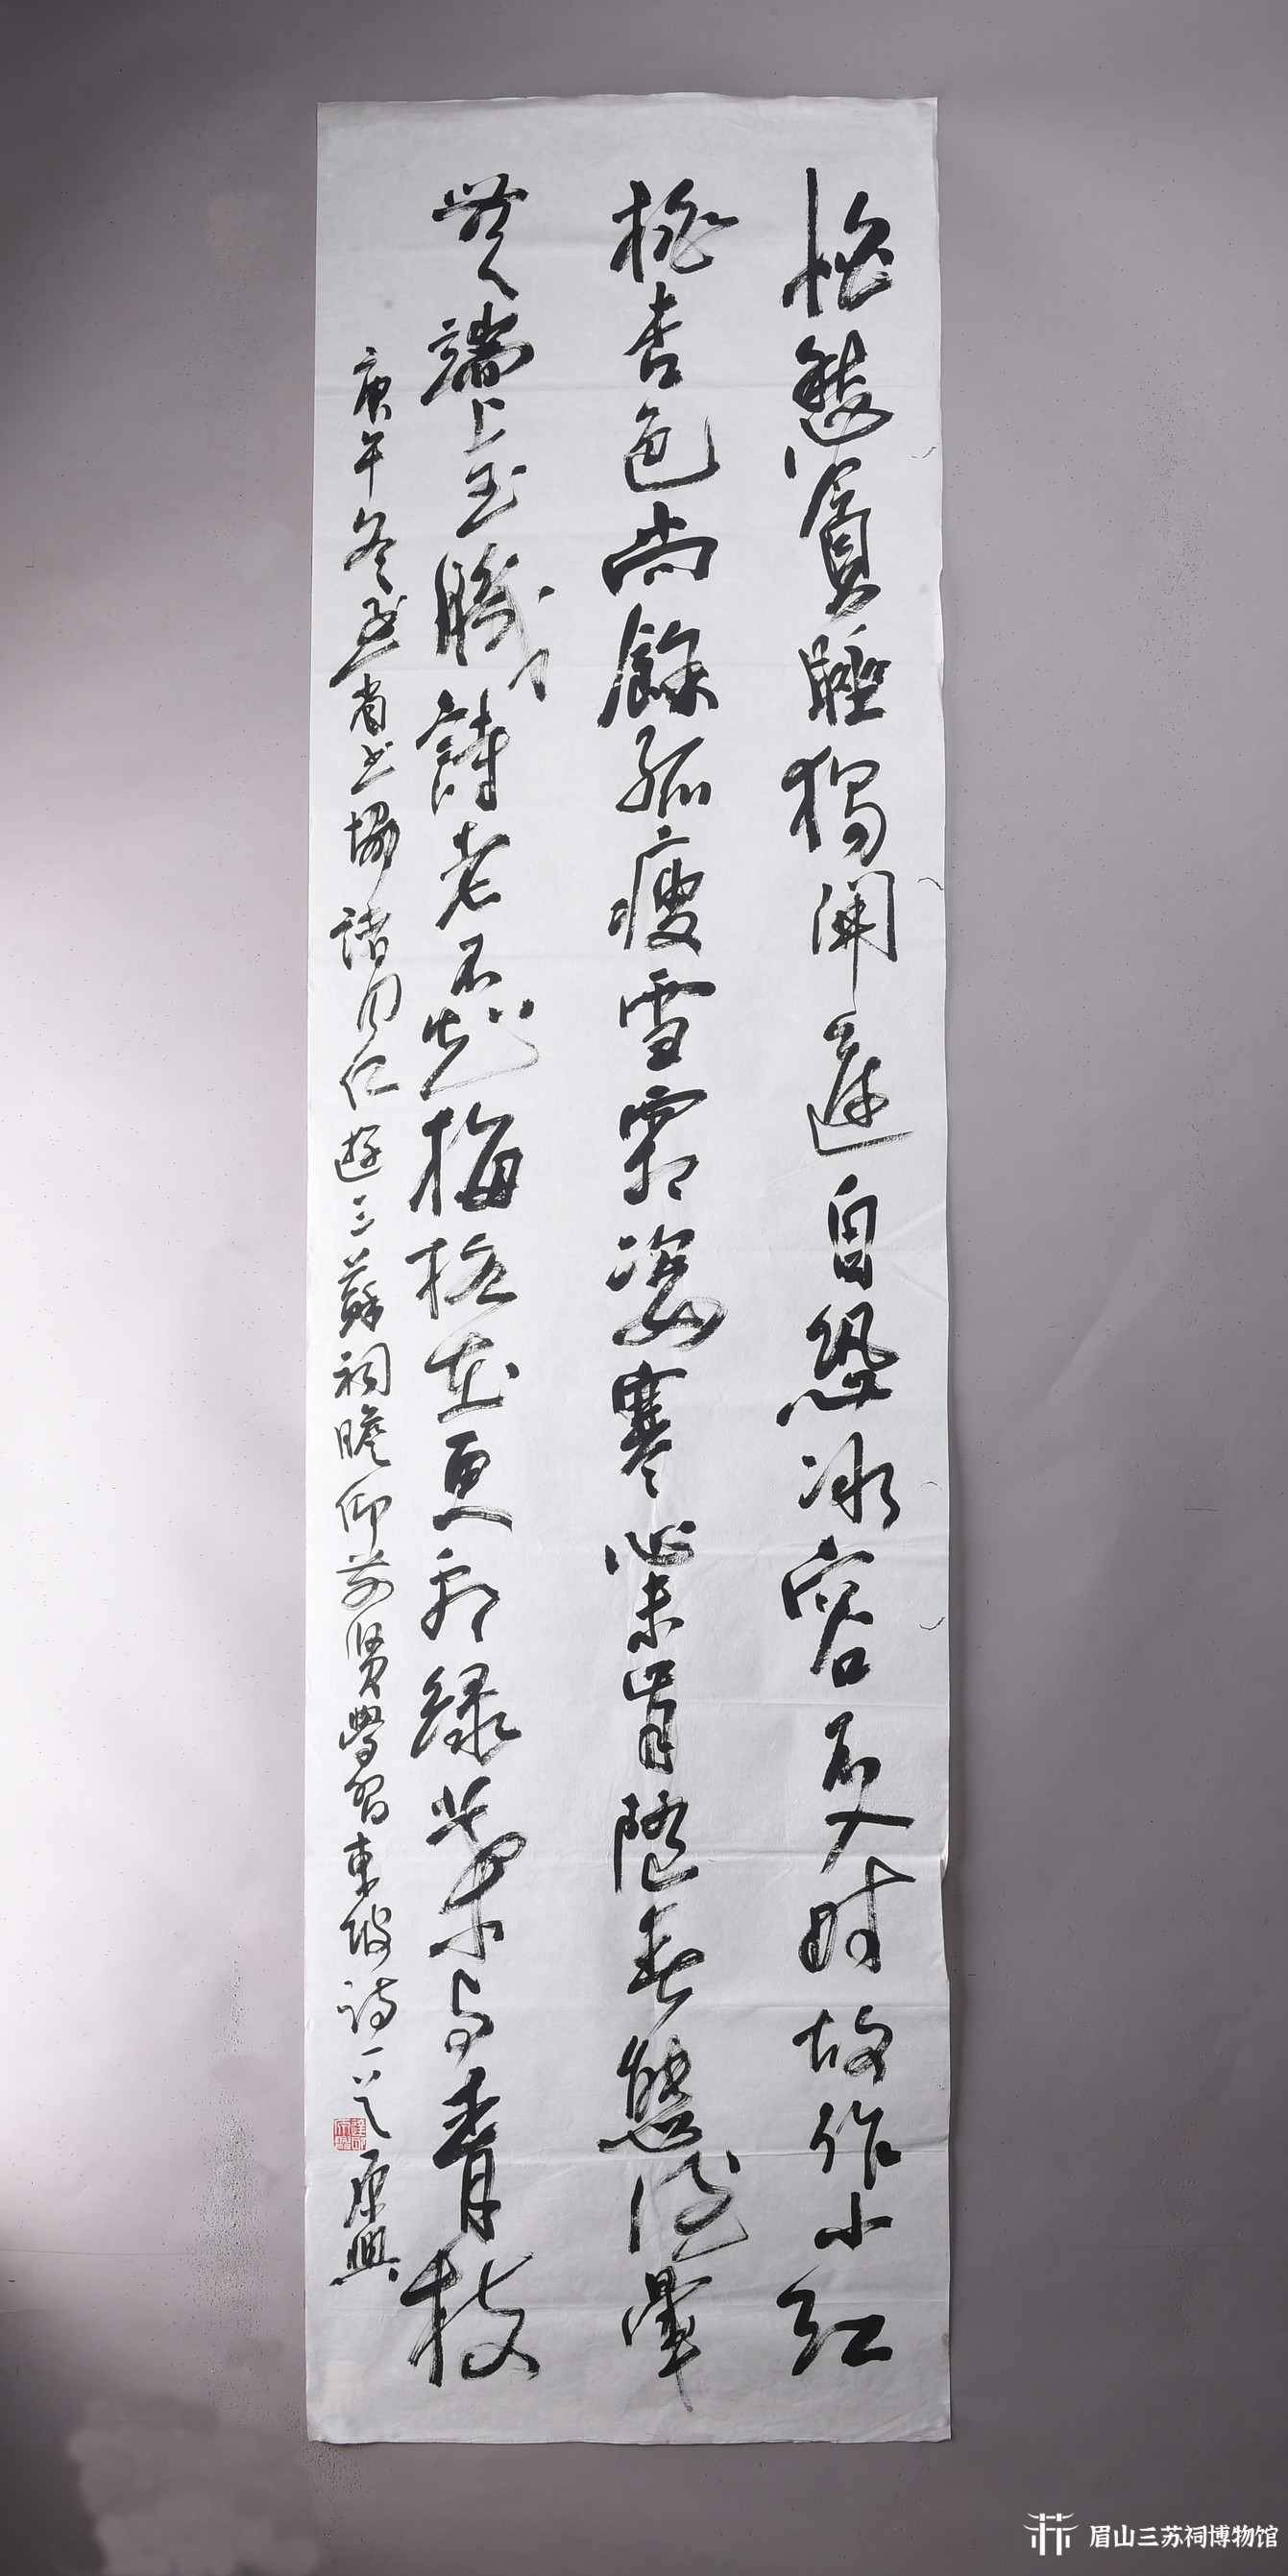 怕愁貪睡獨開遲自恐冰容不入时故作小红
桃杏色尚餘孤瘦雪霜姿寒心未肯隨春態酒暈
無端上玉肌詩老不知梅格在更看綠葉与青枝
庚午冬与省书協諸同仁遊三蘇祠瞻仰前贤學習東坡诗一首
眉山三苏祠博物馆